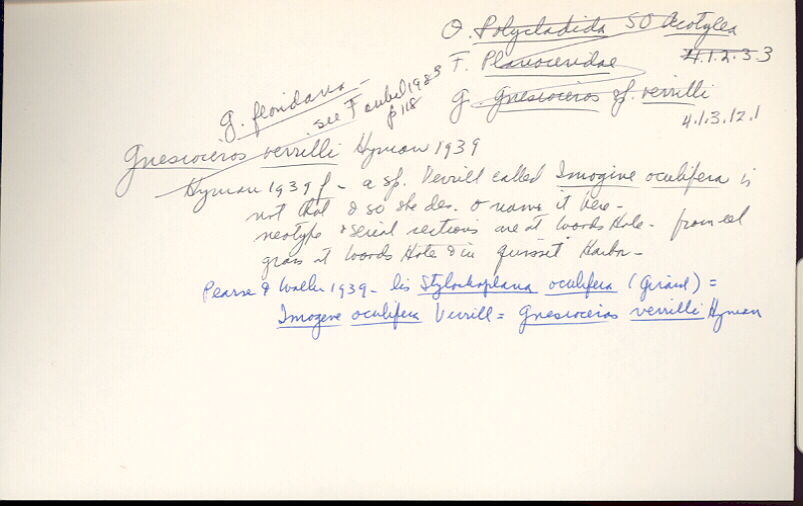 O. Polycladida SO Acotylea
4.1.2.3.3
F. Planoceridae
G. Gnesioceros sp. verrilli
4.1.3.12.1
G. floridana -
see Faubel 1983
p 118
Gnesioceros verrilli Hyman 1939
Hyman 1939 f - a sp. Verrill called Imogine oculifera is
not that & so she des. & name it here -
neotype & serial sections are at Woods Hole - from eel
grass at Woods Hole & in Quisset Harbor -
Pearse & Walker 1939 - lis Stylochoplana oculifera (Girard) =
Imogene oculifera Verrill = Gnesioceros verrilli Hyman